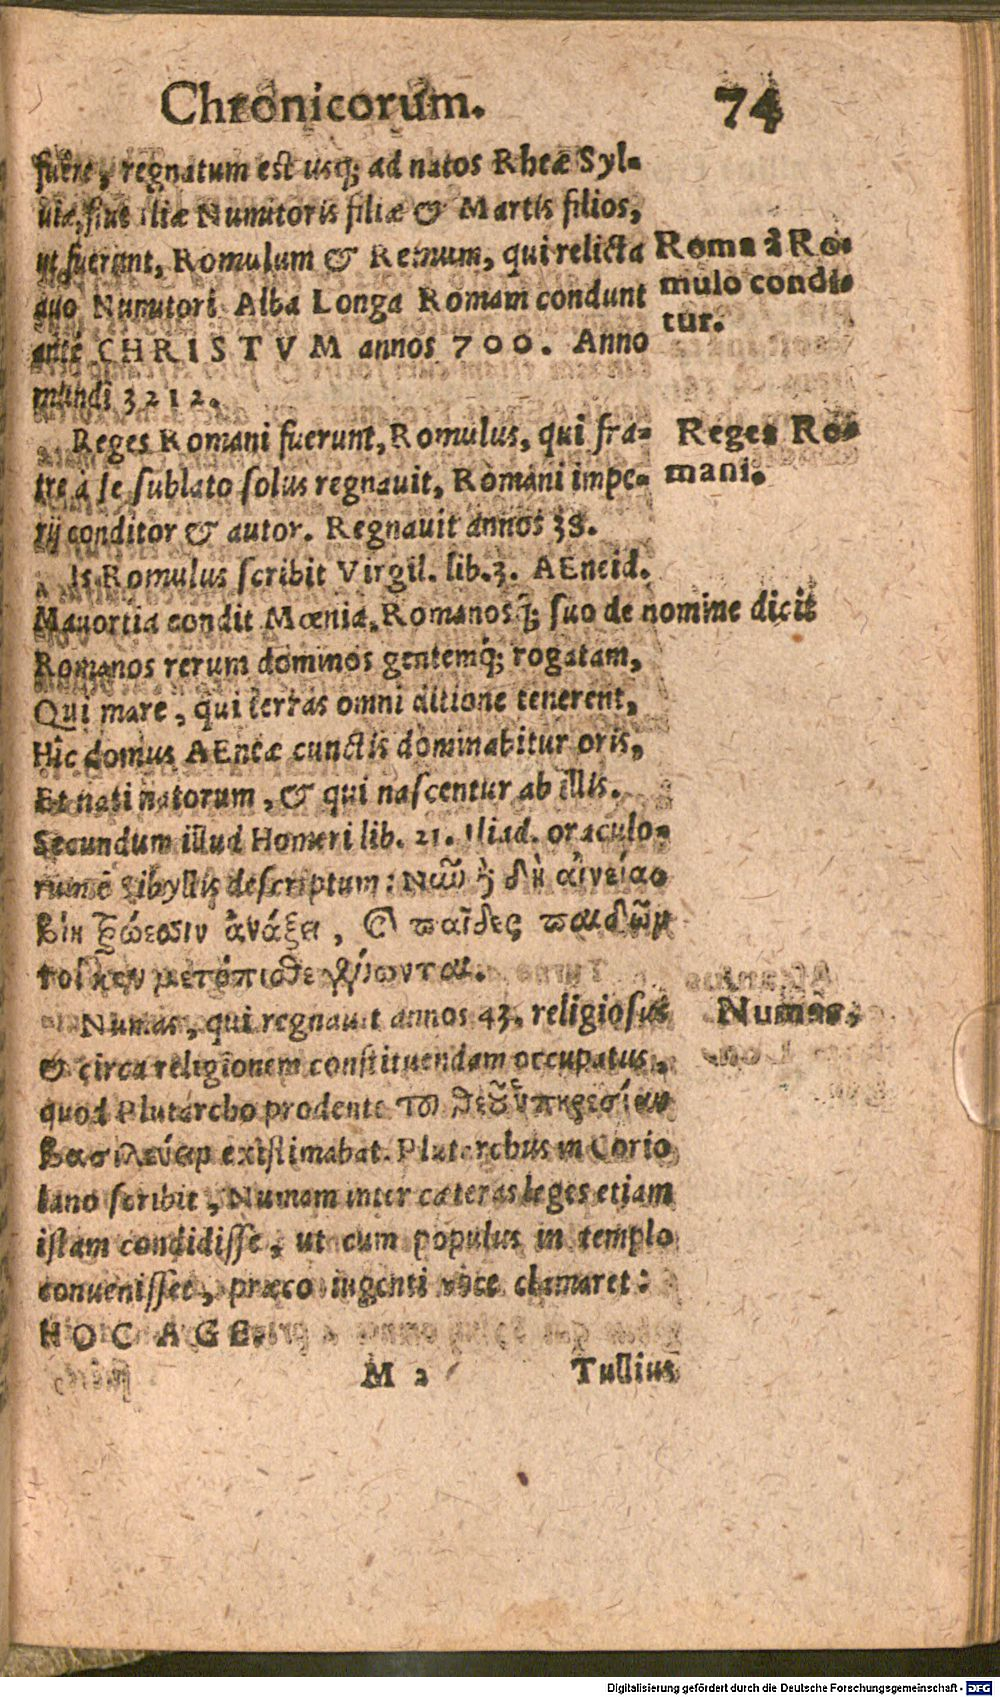 Chronicorum. 74
fuêre, regnatum est usq; ad natos Rheæ Syl-
uiæ, siue Iliæ Numitoris filiæ & Martis filios,
ut fuerunt, Romulum & Remum, qui relicta
auo Numitori Alba Longa Romam condunt
ante CHRISTVM annos 700. Anno
mundi 3212.
Roma à Ro-
mulo condi-
tur.
Reges Romani fuerunt, Romulus, qui fra-
tre a se sublato solus regnauit, Romani impe-
rij conditor & autor. Regnauit annos 38.
Reges Ro-
mani.
Is Romulus scribit Virgil. lib.3. AEneid.
Mauortia condit Mœnia, Romanosq́; suo de nomine dicit
Romanos rerum dominos gentemq́; togatam,
Qui mare, qui terras omni ditione tenerent,
Hîc domus AEneæ cunctis dominabitur oris,
Et nati natorum, & qui nascentur ab illis.
Secundum illud Homeri lib. 21. Iliad. oraculo-
rum è Sibyllis descriptum: Νῶῦ ἢ δὴ αἰνείαο
βίη Τρώεσσιν ἀνάξει, καὶ παῖδες παιδῶν
τοί κεν μετόπισθε γένωνται.
Numas, qui regnauit annos 43, religiosus
& circa religionem constituendam occupatus,
quod Plutarcho prodente τὸ θεοῦ ὑπηρεσίαν
βασιλεύειν existimabat. Plutarchus in Corio
lano scribit, Numam inter cæteras leges etiam
istam condidisse, ut cum populus in templo
conuenisset, præco ingenti voce clamaret:
HOC AGE.
Numas,
M 2 Tullius
Digitalisierung gefördert durch die Deutsche Forschungsgemeinschaft - DFG